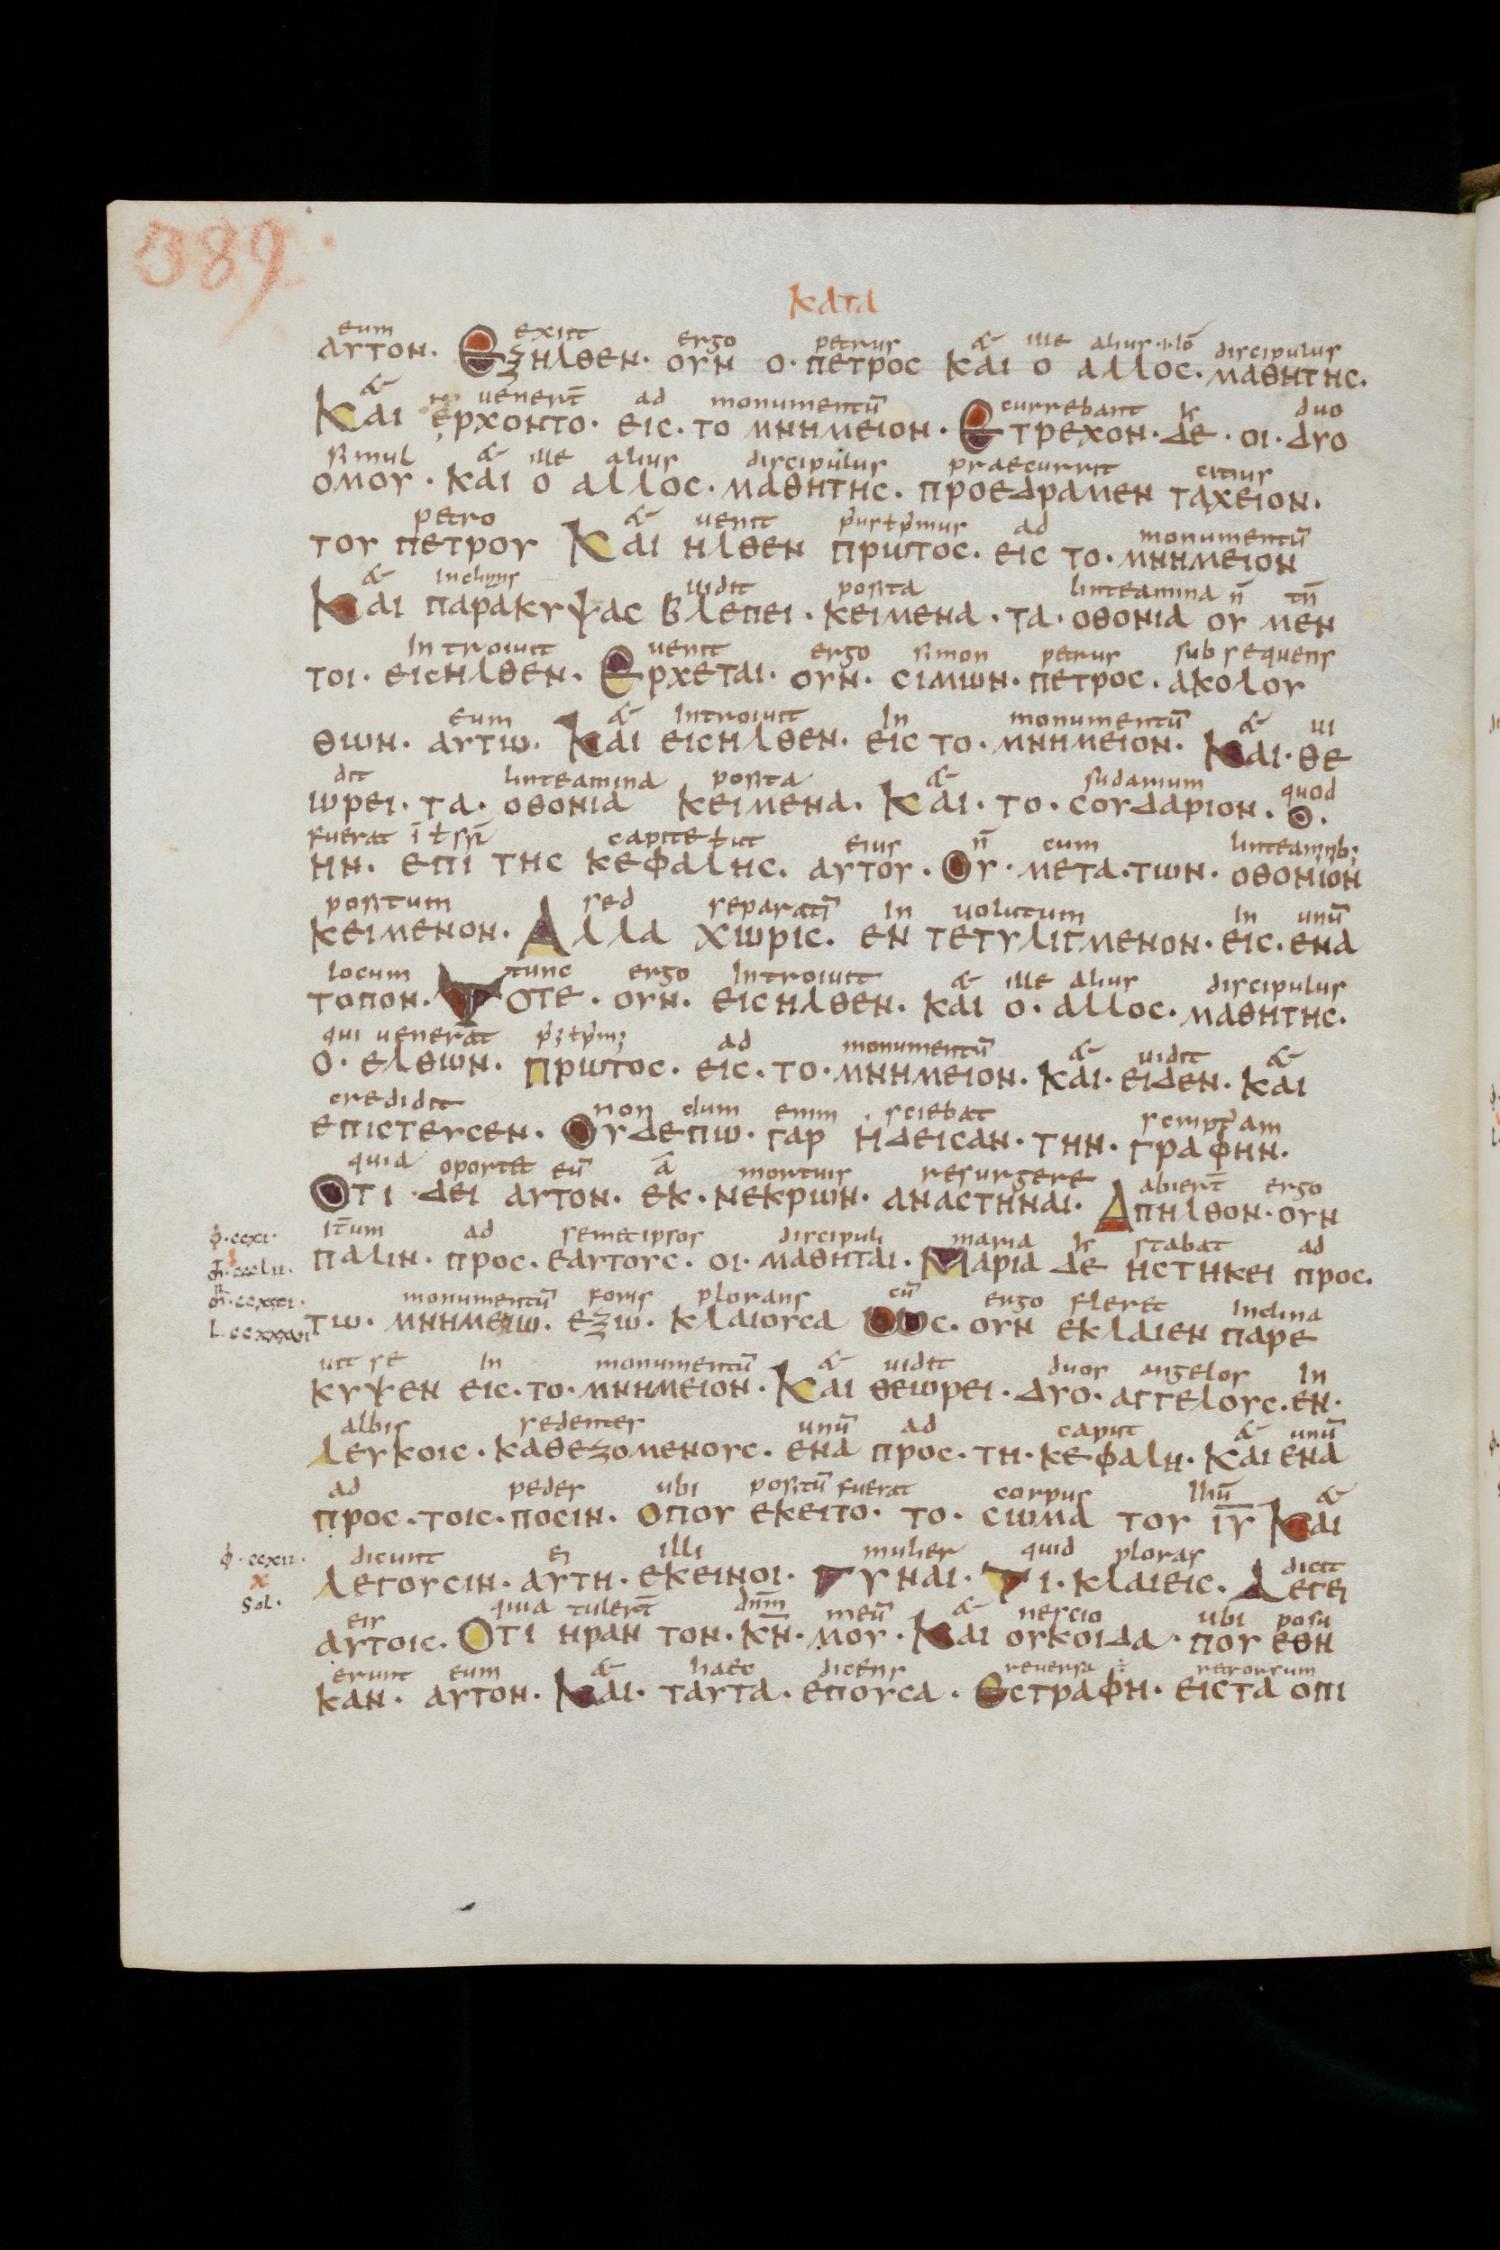 389.
κατα
eum exiit ergo petrus & ille alius discipulus
αυτον. Εξηλθεν. ουν ο. πετρος και ο αλλος. μαθητης.
& uenerūt ad monumentū currebant duo
Και ερχοντο. εις. το μνημειον. Ετρεχον. δε. οι. δυο
simul & ille alius discipulus praecurrit citius
ομου. και ο αλλος. μαθητης. προεδραμεν ταχειον.
petro & uenit ad monumentū
του πετρου Και ηλθεν πρωτος. εις το. μνημειον
& uidit posita linteamina n̄ tn̄
Και παρακυψας βλεπει. κειμενα. τα. οθονια ου μεν
introiuit uenit ergo simon petrus subsequens
τοι. εισηλθεν. Ερχεται. ουν. σιμων. πετρος. ακολου
eum & introiuit in monumentū & ui
θων. αυτω. Και εισηλθεν. εις το. μνημειον. Και. θε
dit linteamina posita & sudarium quod
ωρει. τα. οθονια κειμενα. Και. το. σουδαριον. ο.
fuerat eius n̄ cum
ην. επι της κεφαλης. αυτου. Ου. μετα. των. οθονιον
positum sed separatū in uolutum in unū
κειμενον. Αλλα χωρις. εν τετυλιγμενον. εις. ενα
locum tunc ergo introiuit & ille alius discipulus
τοπον. Τοτε. ουν. εισηλθεν. και ο. αλλος. μαθητης.
qui uenerat ad monumentū & uidit &
ο. ελθων. πρωτος. εις. το. μνημειον. και. ειδεν. και
credidit non dum enim sciebat
επιστευσεν. Ουδεπω. γαρ ηδεισαν. την. γραφην.
quia oportet eū a mortuis resurgere abiert̄ ergo
Οτι. δει αυτον. εκ. νεκρων. αναστηναι. Απηλθον. ουν
ad semetipsos discipuli maria stabat ad
παλιν. προς. εαυτους. οι. μαθηται. Μαρια δε ηστηκει προς.
monumentū foris plorans cū ergo fleret inclina
τω. μνημειω. εξω. κλαιουσα Ως. ουν εκλαιεν παρε
uit se in monumentū & uidit duos angelos in
κυψεν εις. το. μνημειον. Και θεωρει. δυο. αγγελους. εν.
albis sedentes unū ad caput & unū
λευκοις. καθεζομενους. ενα προς. τη. κεφαλη. και ενα
ad pedes ubi positū fuerat corpus ihū &
προς. τοις. ποσιν. οπου εκειτο. το. σωμα του ιυ Και
dicunt ei illi mulier quid ploras dicit
λεγουσιν. αυτη. εκεινοι. Γυναι. Τι. κλαιεις. Λεγει
eis quia tulert̄ dnm̄ meū & nescio ubi posu
αυτοις. Οτι ηραν τον. κν̄. μου. Και ουκοιδα. που εθη
erunt eum & haec dicens reuersa retrorsum
καν. αυτον. Και. ταυτα. επουσα. Εστραφη. εις τα οπι